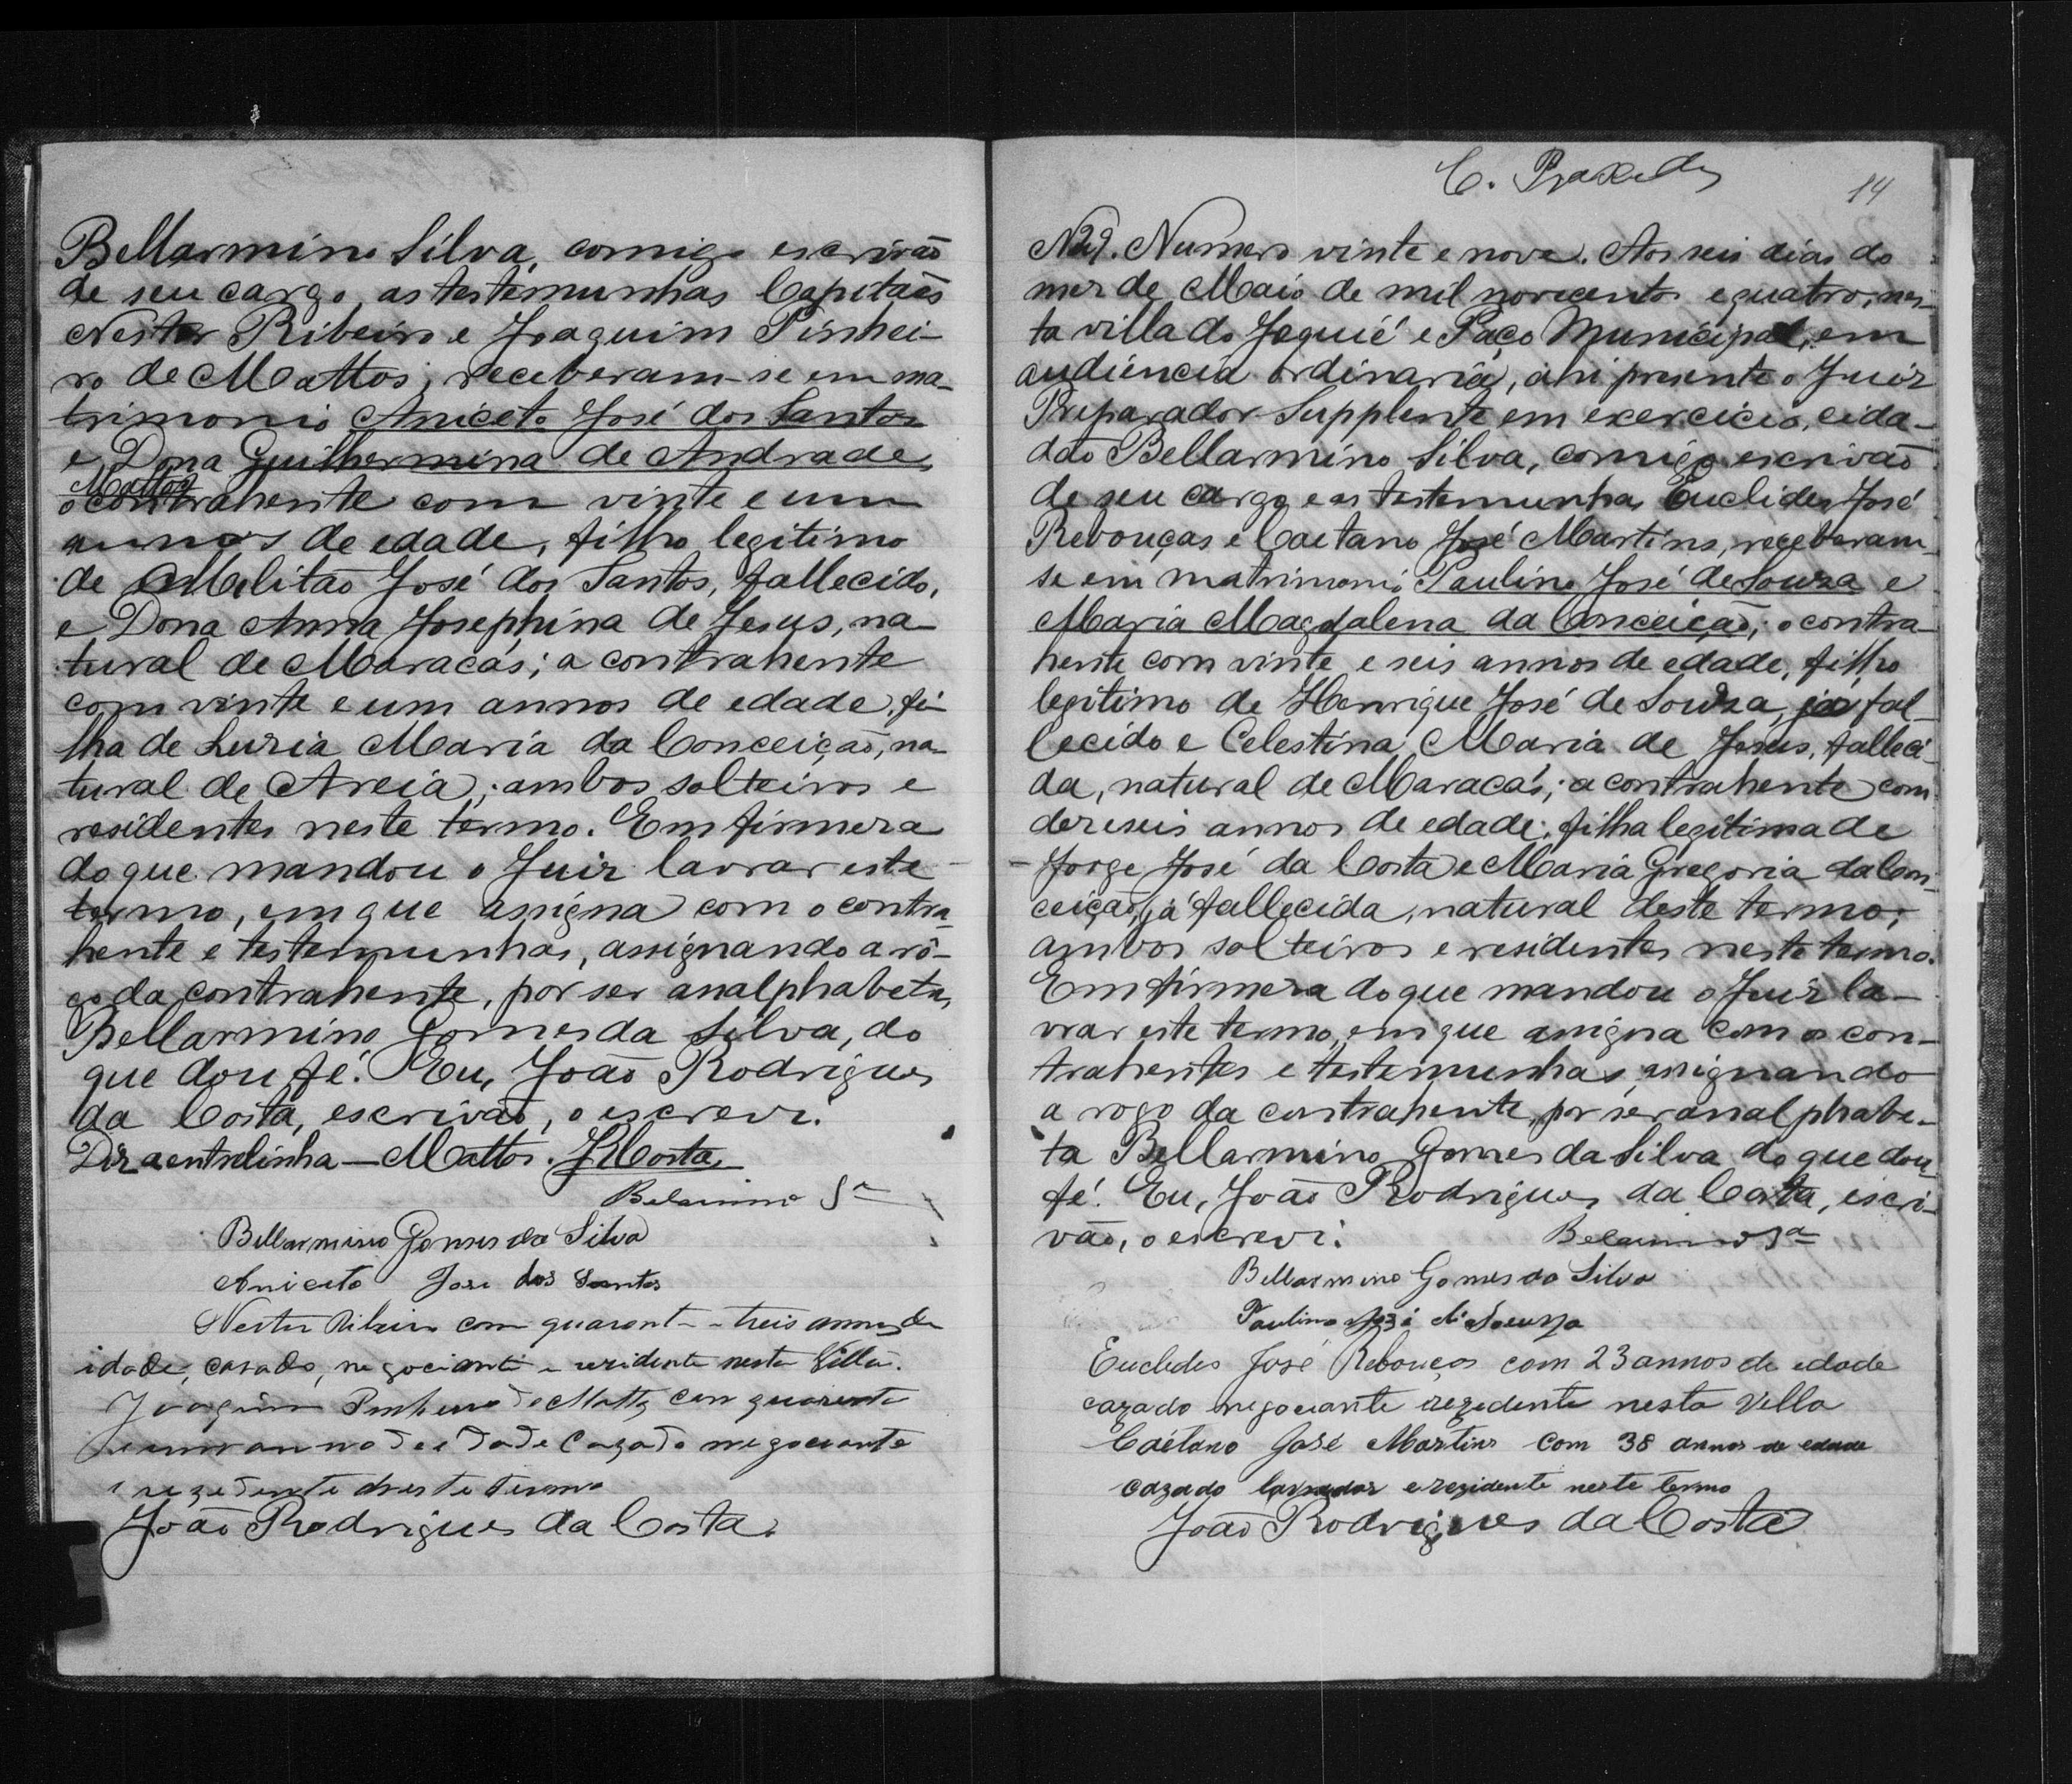 Bellarmino Silva, comigo escrivão
de seu cargo, as testemunhas Capitães
Nestor Ribeiro e Joaquim Pinhei-
ro de Mattos, receberam-se em ma-
trimonio Aniceto José dos Santos
e Dona Guilhermina de Andrade
Mattos
o contrahente com vinte e um
annos de edade, filho legitimo
de Melitão José dos Santos, fallecido,
e Dona Anna Josephina de Jesus, na-
tural de Maracás; a contrahente
com vinte e um annos de edade, fi-
lha de Luzia Maria da Conceição, na-
tural de Areia; ambos solteiros e
residentes neste termo. Em firmeza
do que mandou o Juiz lavrar este
termo, em que assigna com o contra-
hente e testemunhas, assignando a rô-
go da contrahente, por ser analphabeta,
Bellarmino Gomes da Silva, do
que dou fé. Eu, João Rodrigues
da Costa, escrivão, o escrevi.
Diz a entrelinha — Mattos. JRCosta,
Belarmino Sa
Bellarmino Gomes da Silva
Aniceto Jose dos Santos
Nestor Ribeiro com quarent e treis annos de
idade, casado, negociante e residente nesta Villa.
Joaquim Pinheiro de Mattos com quarenta
e um anno de idade cazado negociante
e rezedente neste termo
João Rodrigues da Costa.
C. Praxedes
14
N29. Numero vinte e nove. Aos seis dias do
mez de Maio de mil novecentos e quatro, nes-
ta villa do Jequié e Paço Municipal, em
audiencia ordinaria, ahi presente o Juiz
Preparador Supplente em exercicio, cida-
dão Bellarmino Silva, comigo escrivão
de seu cargo e as testemunhas Euclides José
Rebouças e Caetano José Martins, receberam-
se em matrimonio Paulino José de Souza e
Maria Magdalena da Conceição; o contra-
hente com vinte e seis annos de edade, filho
legitimo de Henrique José de Souza, já fal-
lecido e Celestina Maria de Jesus, falleci-
da, natural de Maracás; a contrahente com
dezeseis annos de edade, filha legitima de
Jorge José da Costa e Maria Gregoria da Con-
ceição, já fallecida, natural deste termo;
ambos solteiros e residentes neste termo.
Em firmeza do que mandou o Juiz la-
vrar este termo, em que assigna com os con-
trahentes e testemunhas, assignando
a rogo da contrahente, por ser analphabe-
ta Bellarmino Gomes da Silva do que dou
fé. Eu, João Rodrigues da Costa, escri-
vão, o escrevi.
Belarmino Sa
Bellarmino Gomes da Silva
Paulino José de Souza
Euclides José Rebouças com 23 annos de edade
cazado negociante rezedente nesta Villa
Caétano José Martins com 38 annos de edade
cazado lavrador e rezidente neste termo
João Rodrigues da Costa